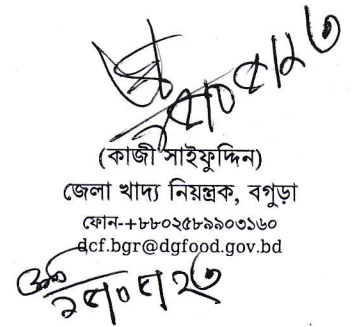 (কাজী সাইফুদ্দিন)
জেলা খাদ্য নিয়ন্ত্রক, বগুড়া
ফোন-+৮৮০২৫৮৯৯০৩১৬০
dcf.bgr@dgfood.gov.bd